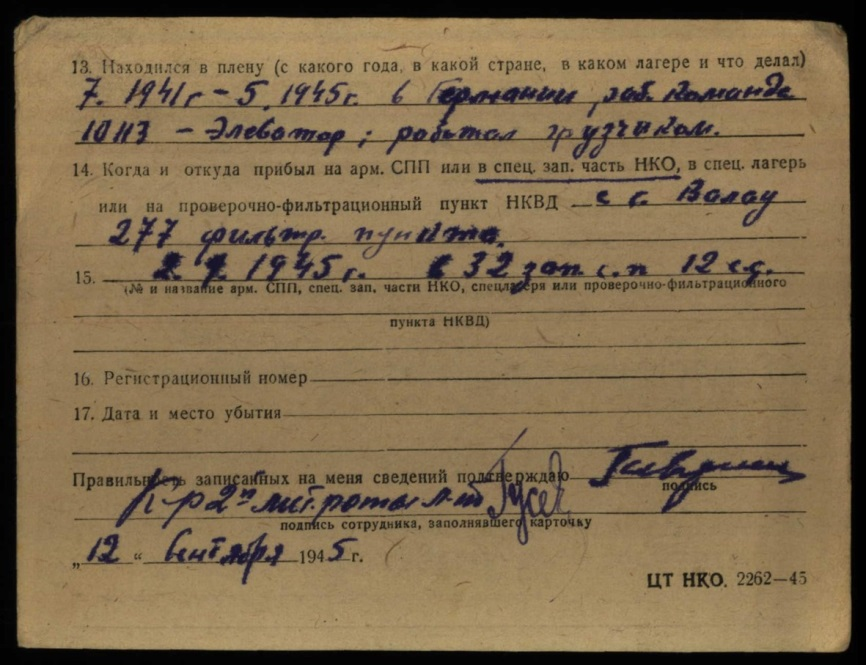 13. Находился в плену (с какого года, в какой стране, в каком лагере и что делал)
7. 1941 г – 5. 1945 г. в Германии, раб. команда
10113 – Элеватор; работал грузчиком.
14. Когда и откуда прибыл на арм. СПП или в спец. зап. часть НКО, в спец. лагерь
или на проверочно-фильтрационный пункт НКВД с г.
277 фильтр. пункта.
15. 1945 г. 32 зап. с.п 12 с.д.
(№ и название арм. СПП, спец. зап. части НКО, спецлагеря или проверочно-фильтрационного
пункта НКВД)
16. Регистрационный номер
17. Дата и место убытия
Правильность записанных на меня сведений подтверждаю
подпись
К-р 2й роты л-т Гусев
подпись сотрудника, заполнявшего карточку
„12“ Сентября 1945 г.
ЦТ НКО. 2262—45